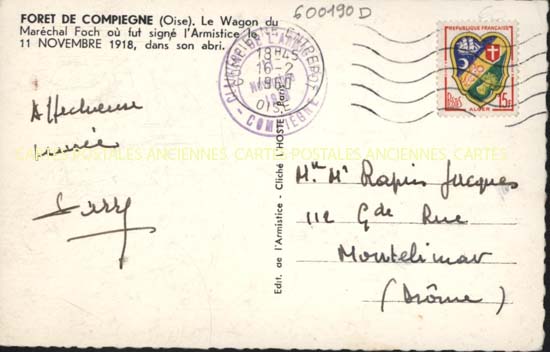 FORET DE COMPIEGNE (Oise). Le Wagon du
Maréchal Foch où fut signé l'Armistice le
11 NOVEMBRE 1918, dans son abri.
600190D
18H45
16-2
OISE
COMPIEGNE
REPUBLIQUE FRANÇAISE
POSTES
15F
ALGER
Affectueuse
pensée
CARTES POSTALES ANCIENNES CARTES POSTALES ANCIENNES CARTES
Edit. de l'Armistice - Cliché L'HOSTE, Paris
Mr Rapin Jacques
112 Gde Rue
Montelimar
(Drôme)